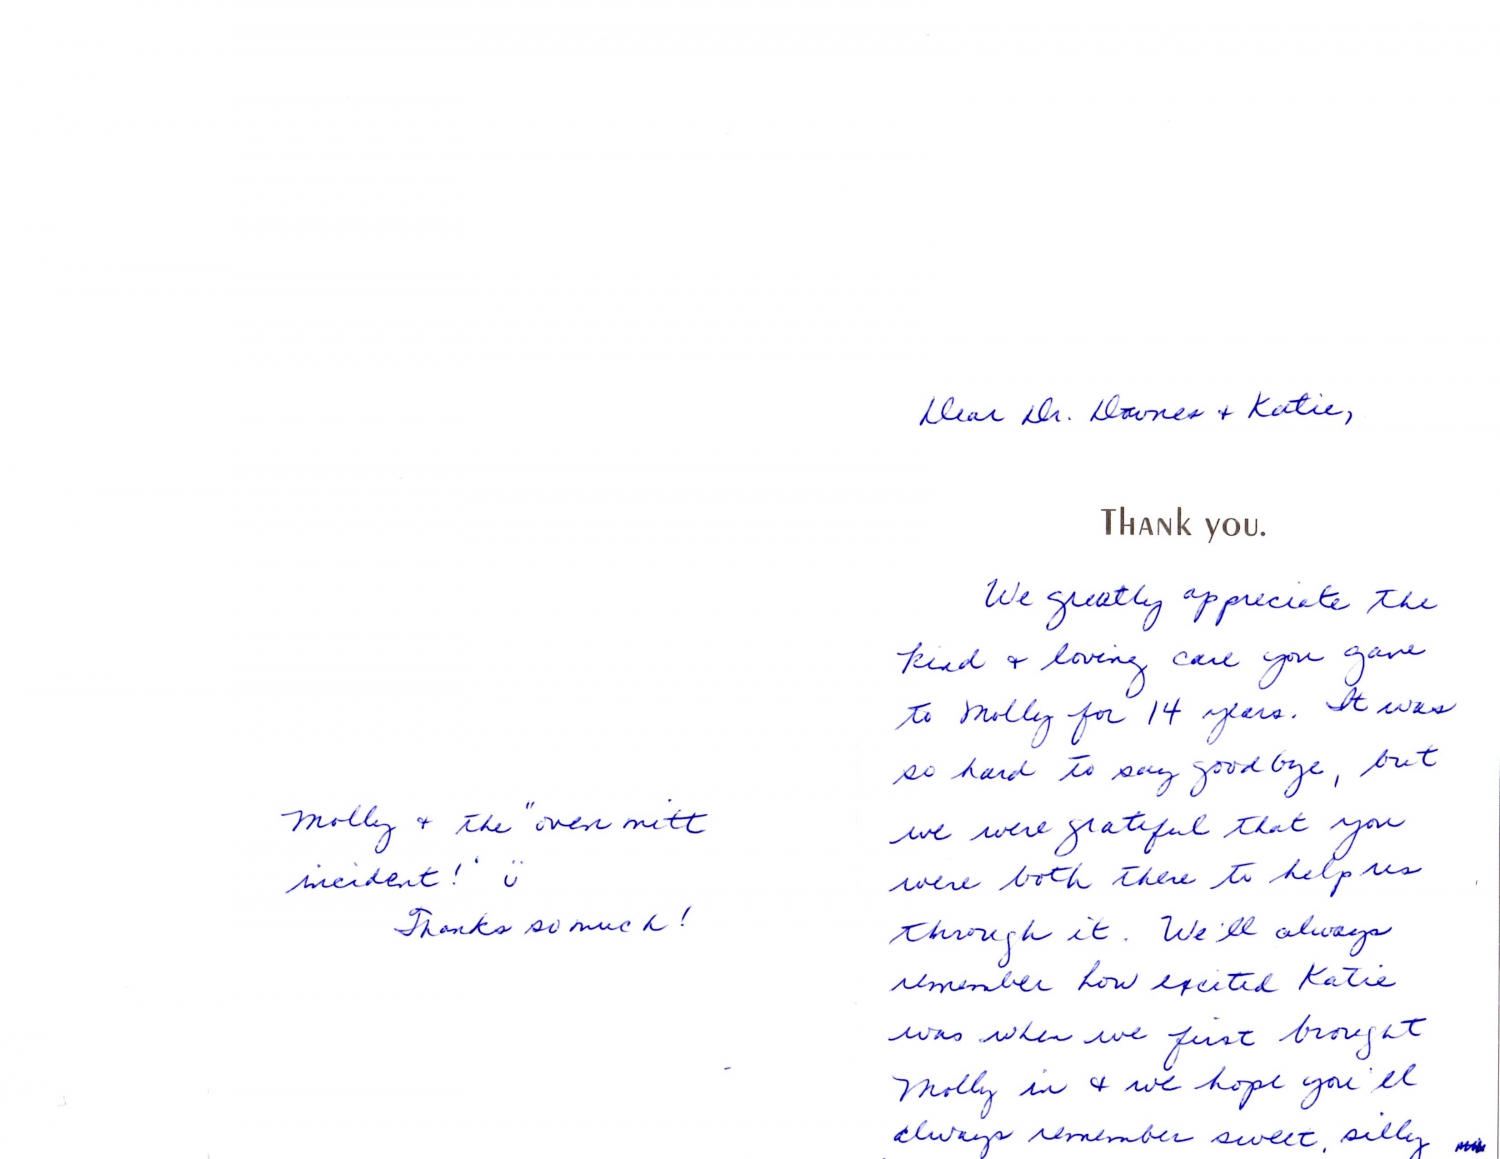 Dear Dr. Downes + Katie,
Thank you.
We greatly appreciate the
kind + loving care you gave
to Molly for 14 years. It was
so hard to say goodbye, but
we were grateful that you
were both there to help us
through it. We'll always
remember how excited Katie
was when we first brought
Molly in & we hope you'll
always remember sweet, silly
Molly + the "oven mitt
incident!"
Thanks so much!